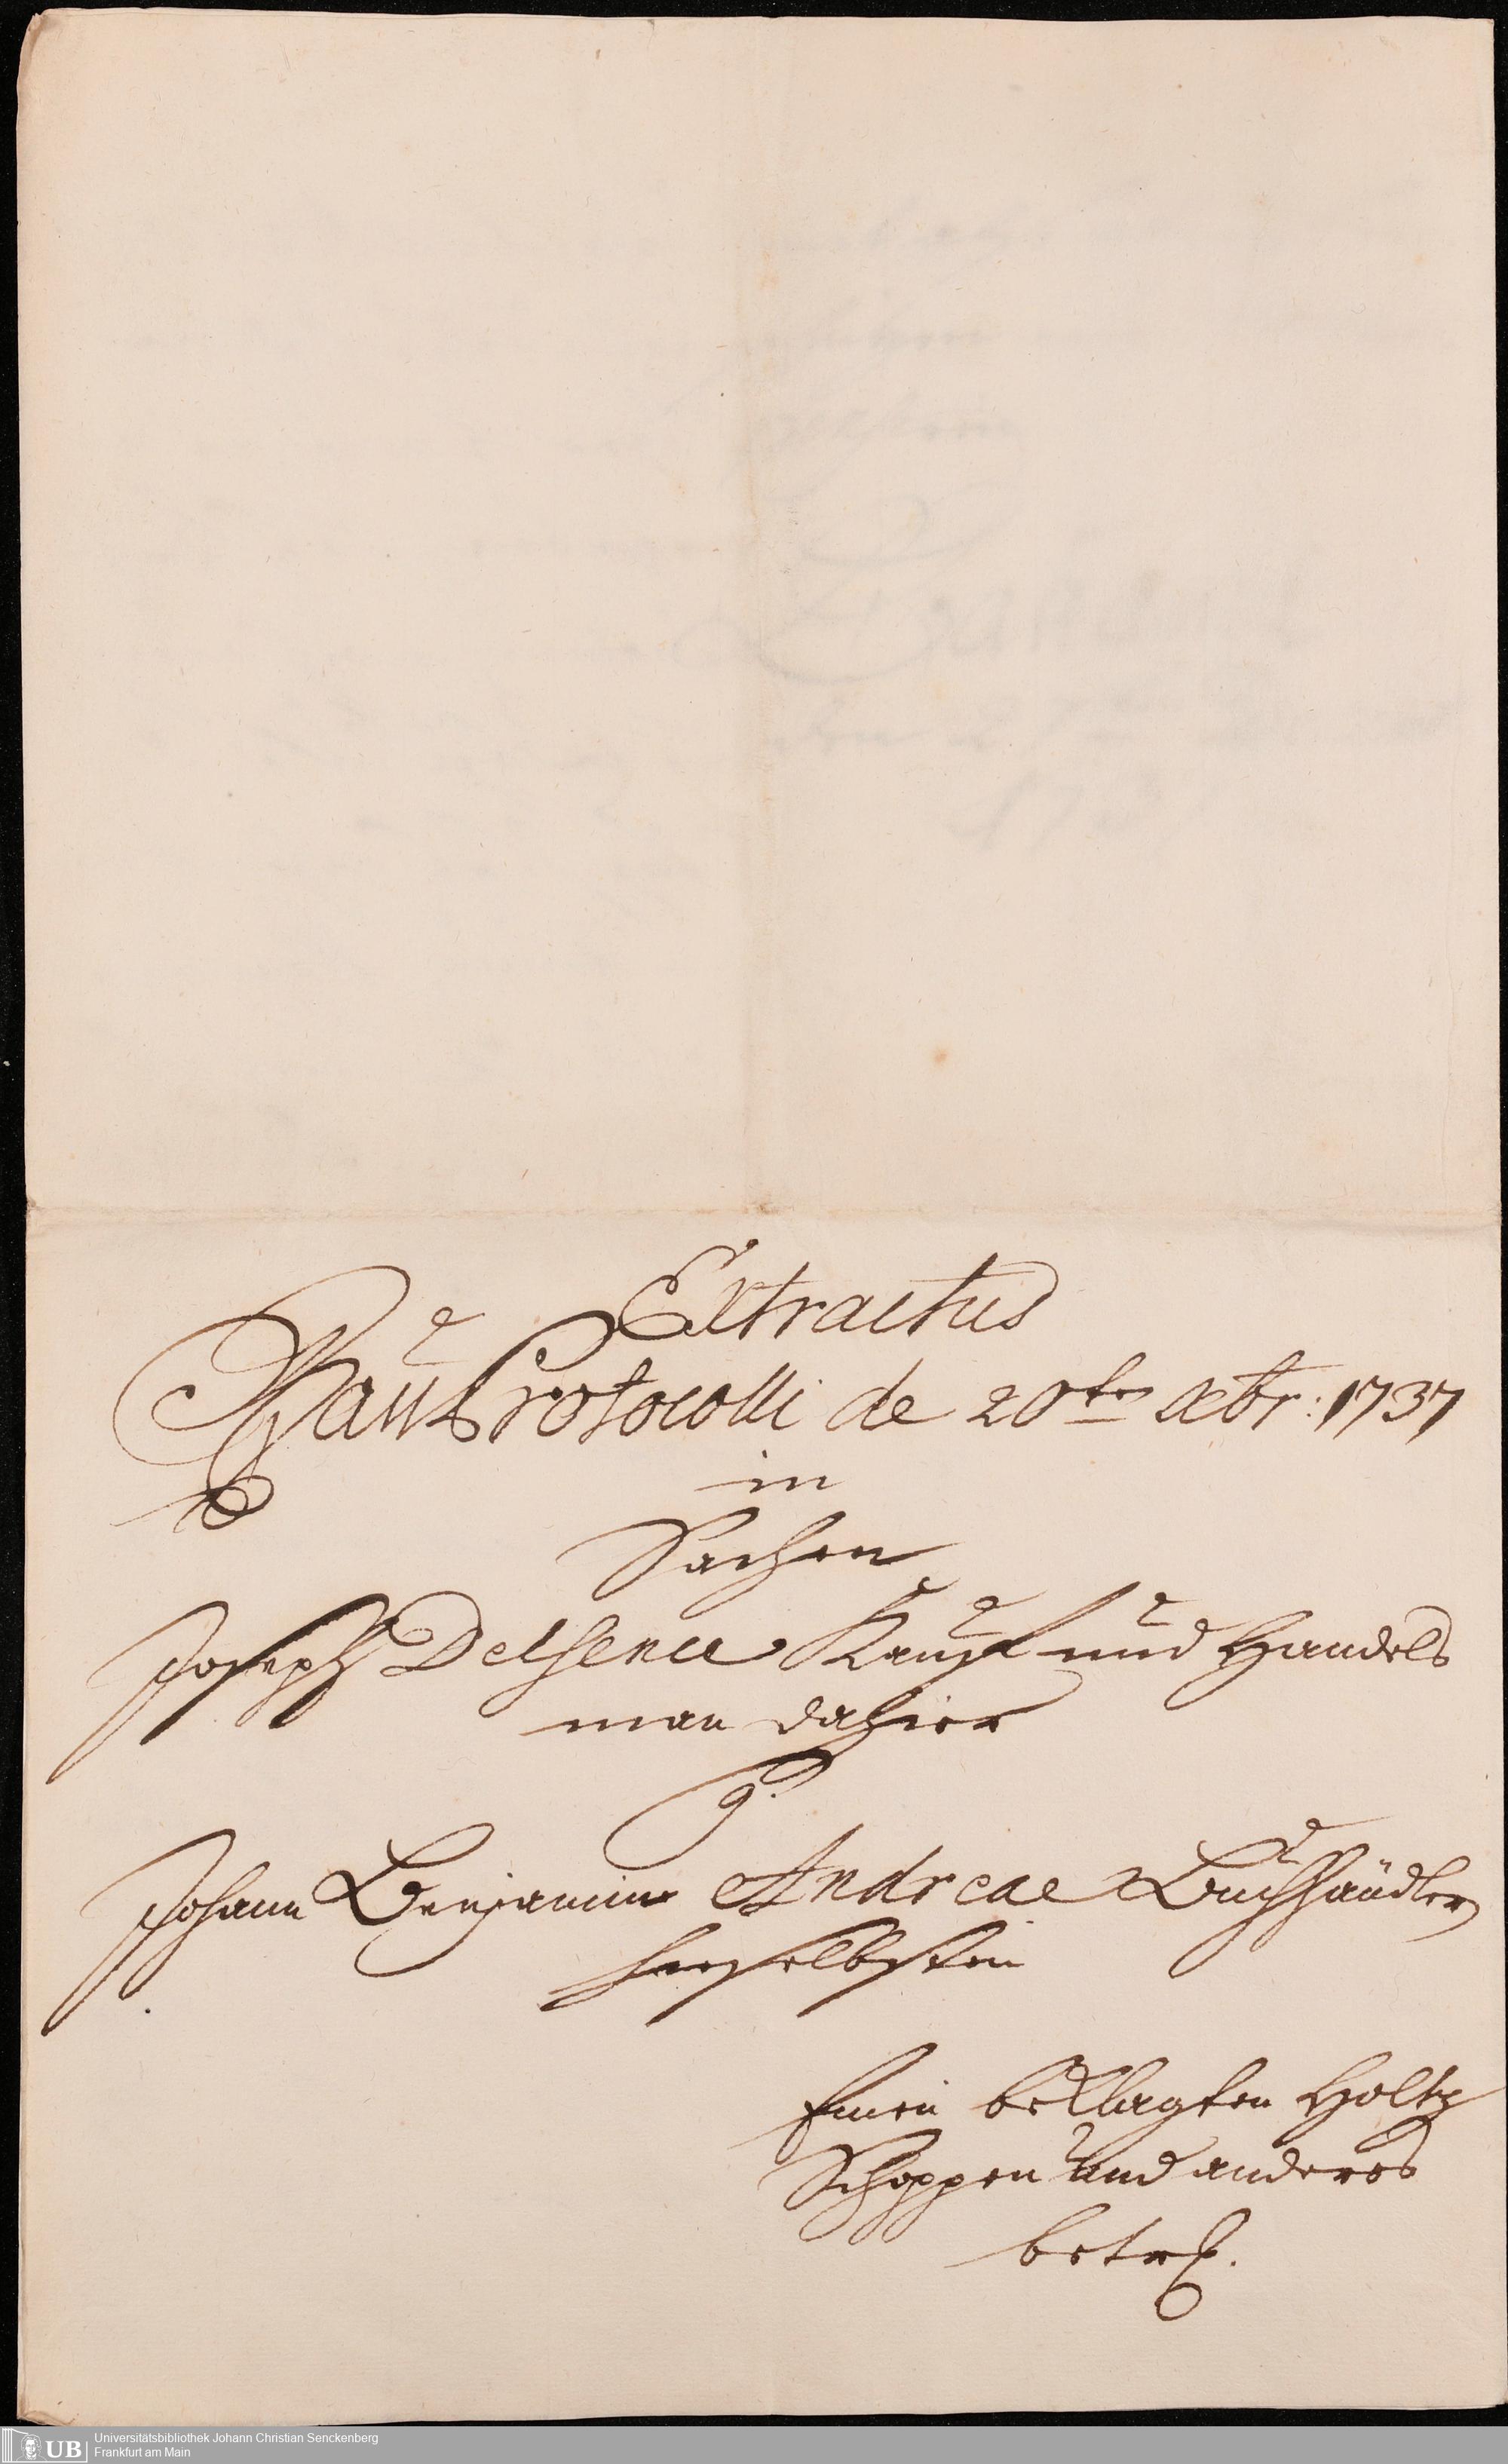 Extractus
Bau Protocolli de 20ten xbr: 1737
in
Sachen
Joseph Delsena Kauf und Handels
man dahier
Johann Benjamin Andreae Buchhändler
hieselbsten
Einen beklagten Holtz
Schoppen und anderes
betrf.
UB
Universitätsbibliothek Johann Christian Senckenberg
Frankfurt am Main